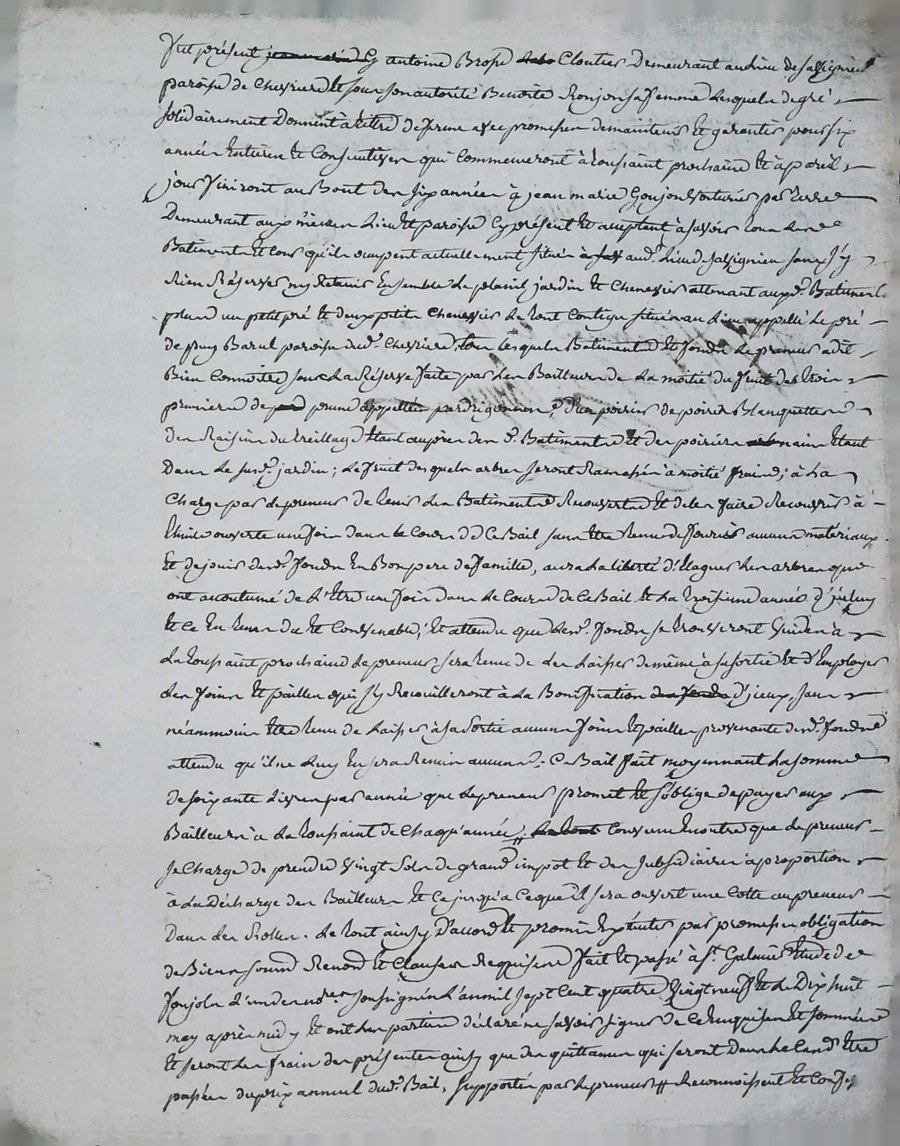 fut présent antoine Brosse Cloutier Demeurant au lieu de Sassignieu
paroisse de Chevriere Et sous son autorité Benoite Ronjon sa femme Lesquels de gré
solidairement Donnent a titre de ferme avec promesse de maintenir Et garantir pour six
années Entieres Et Consecutives qui Commenceront à toussaint prochaine Et a pareil
jour finiront au Bout des six années à jean marie Goujon voiturier par terre
Demeurant aux mêmes Lieu Et paroisse Cy présent Et acceptant à savoir tous les
Batiments Et cour qu'ils occupent actuellement situés aud. Lieu de Sassignieu sans s'y
Rien Réserver ny Retenir Ensemble Le jardin Et Chenevier attenant auxd. Batiments
plus un petit pré Et deux petits Cheneviers Le tout Contigu situés au Lieu appellé Le pré
de puy Barul paroisse dud. Chevriere, tous lesquels Batiments Et fonds Le preneur a dit
Bien Connoitre sous La Réserve faite par Les Bailleurs de La moitié du fruit des trois
pruniers de prune appellés perdrigonnes, d'un poirier de poires Blanquettes
des Raisins du treillage Etant auprès des d. Batiments Et des poiriers nains Etant
Dans Le susd. jardin; Le fruit desquels arbres seront Ramassés à moitié fraix; à La
Charge par Le preneur de tenir Les Batiments Recouverts Et de les faire Recouvrir à
thuile ouverte une fois dans le Cours de Ce Bail sans Etre tenu de fournir aucuns matériaux
Et de jouir desd. fonds En Bon pere de famille, aura La liberté d'Elaguer Les arbres qui
ont accoutumé de L'Etre une fois dans Le Cours de Ce Bail Et La troisieme année d'iceluy
Et Ce En tems du Et Convenable; Et attendu que Lesd. fonds se trouveront vuides à
La toussaint prochaine Le preneur sera tenu de Les Laisser de même à sa sortie Et d'Employer
Les foins Et pailles qui s'y Recueilleront à La Bonification d'iceux, sans
néanmoins Etre tenu de Laisser à sa sortie aucuns foins Et pailles provenants desd. fonds
attendu qu'il ne Luy En sera Remis aucuns. Ce Bail fait moyennant La somme
de soixante Livres par année que Le preneur promet Et s'oblige de payer aux
Bailleurs a La toussaint de Chaqu'année, Convenu Encontre que Le preneur
se Charge de prendre vingt sols de grand impot Et des subsidiaires a proportion
à La Décharge des Bailleurs Et Ce jusqu'a Ceque Il sera ouvert une Cotte au preneur
Dans Les Rolles. Le tout ainsy D'accord Et promis Exécuter par promesse obligation
de Biens soumis Renoncé Et Clauses Requises fait Et passé à St. Galmier Etude de
Jonjols L'un des nores. soussignés L'an mil sept cent quatre vingt neuf Et Le Dix huit
may après midy Et ont Les parties déclaré ne savoir signer de Ce Enquises Et sommées
Et seront Les frais des présentes ainsy que des quittances qui seront Dans Le Cas d'Etre
passées du prix annuel dud. Bail, supportés par Le preneur Reconnoissent Et Conf